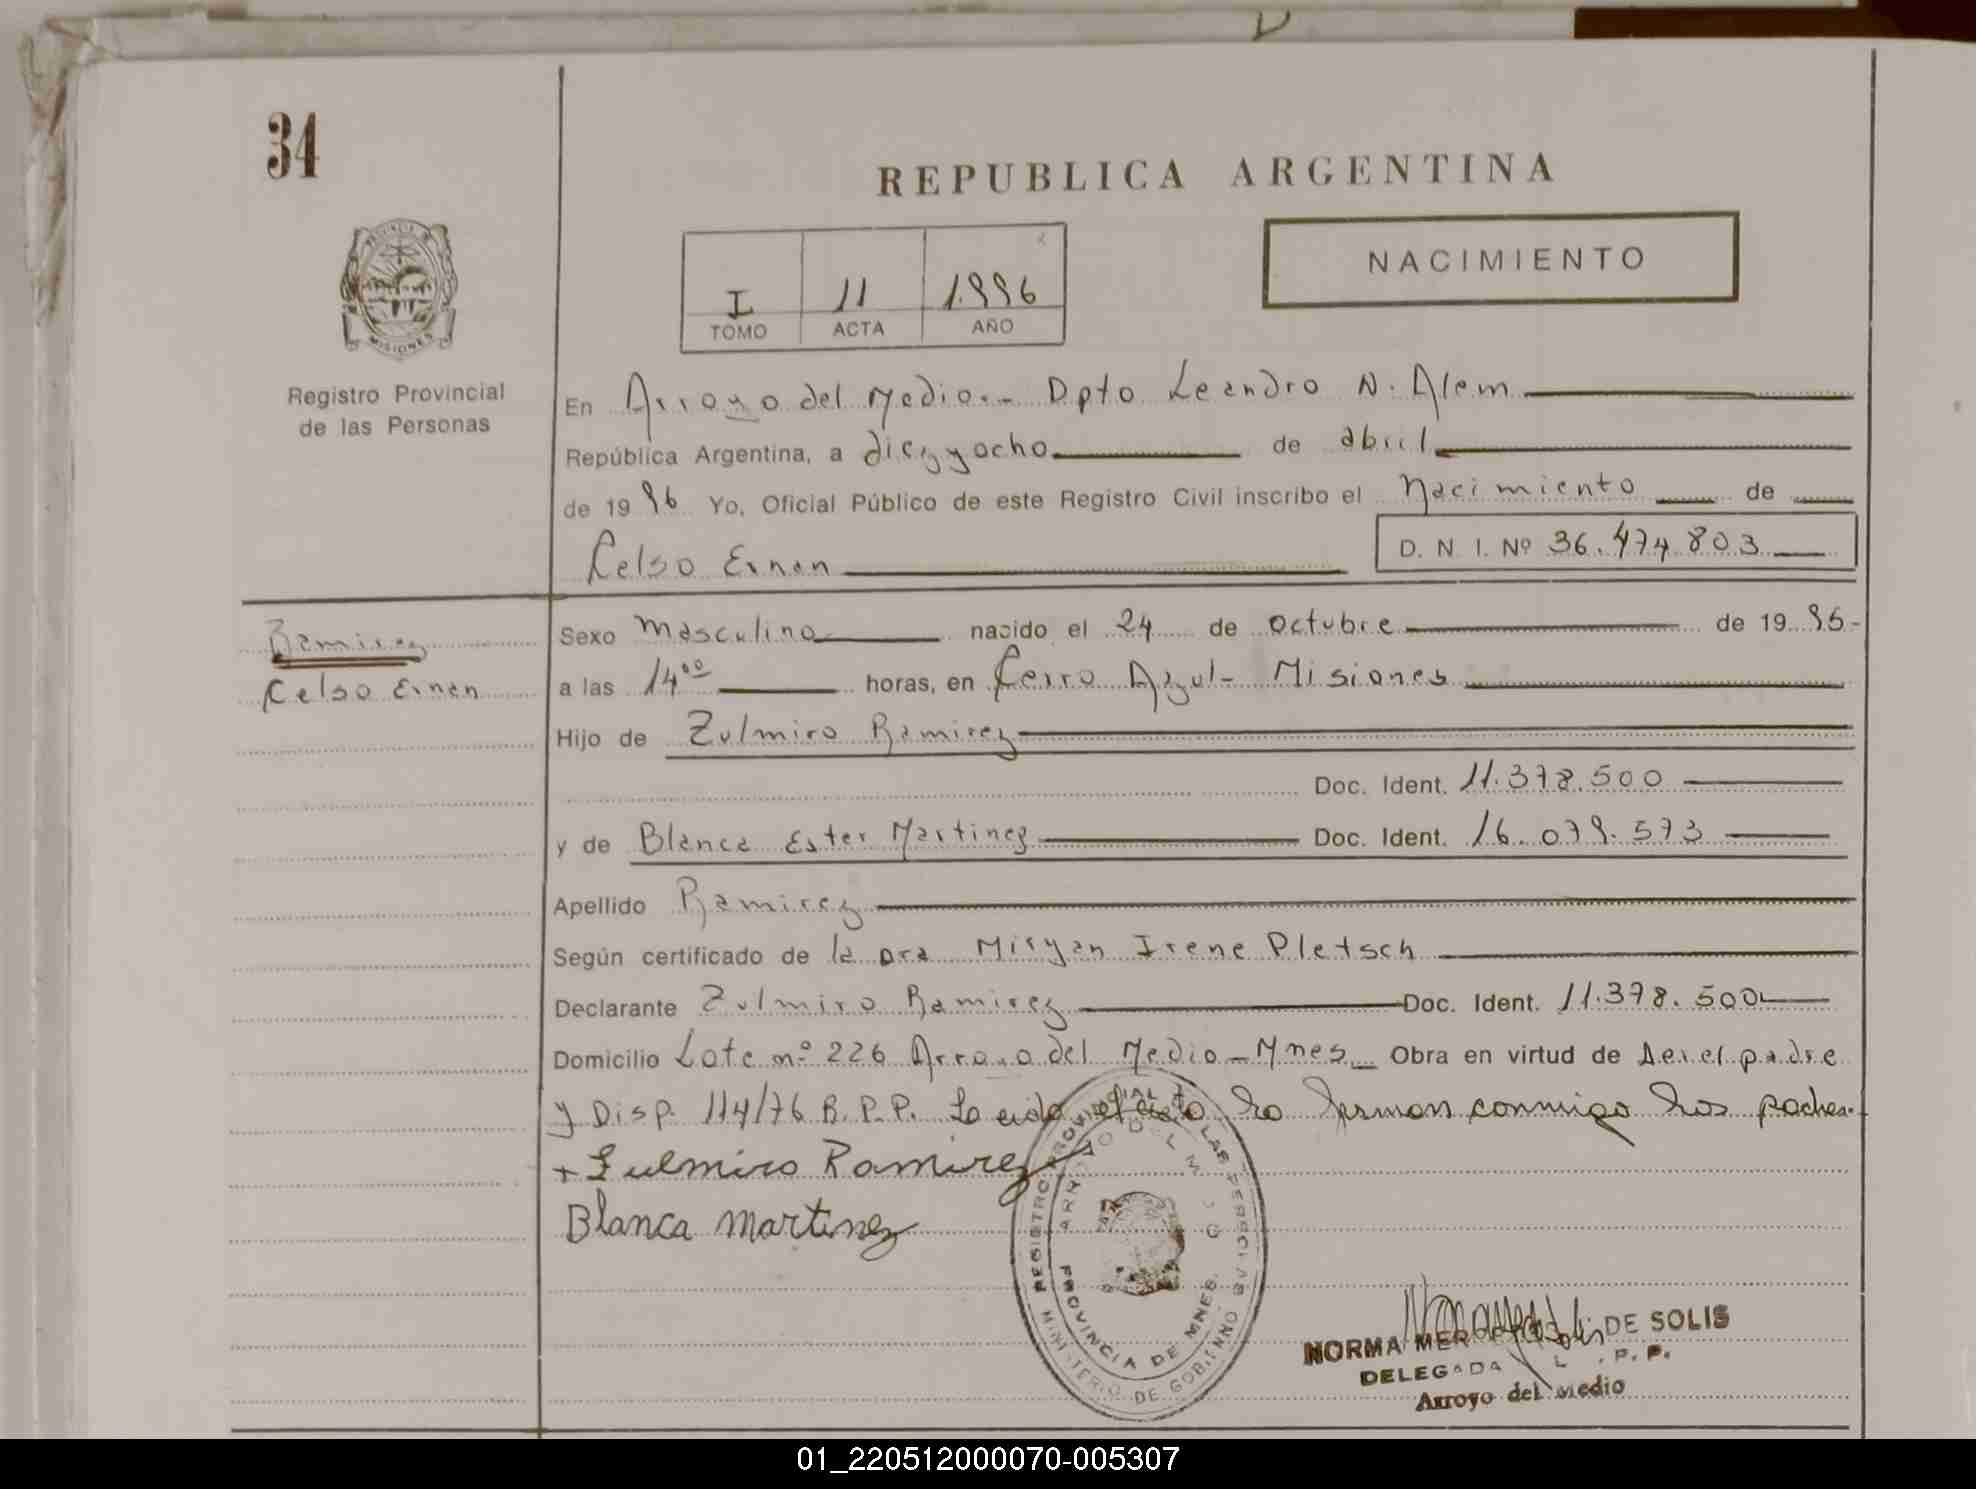 34
REPUBLICA ARGENTINA
PROVINCIA DE
MISIONES
NACIMIENTO
I 11 1.996
TOMO ACTA AÑO
Registro Provincial
de las Personas
En Arroyo del Medio.- Dpto Leandro N. Alem
República Argentina, a diez y ocho de abril
de 19 96 Yo, Oficial Público de este Registro Civil inscribo el Nacimiento de
Celso Ernan D. N. I. Nº 36.474.803
Ramirez
Celso Ernan
Sexo Masculino nacido el 24 de octubre de 19 95-
a las 14⁰⁰ horas, en Cerro Azul- Misiones
Hijo de Zulmiro Ramirez
Doc. Ident. 11.378.500
y de Blanca Ester Martinez Doc. Ident. 16.079.573
Apellido Ramirez
Según certificado de la Dra Miryan Irene Pletsch
Declarante Zulmiro Ramirez Doc. Ident. 11.378.500
Domicilio Lote nº 226 Arroyo del Medio-Mnes Obra en virtud de ser el padre
y Disp. 114/76 R.P.P. Leida el acta la firman conmigo los padres.
+ Zulmiro Ramirez
Blanca Martinez
REGISTRO PROVINCIAL DE LAS PERSONAS
ARROYO DEL MEDIO
PROVINCIA DE MNES.
MINISTERIO DE GOBIERNO
NORMA MER DE SOLIS
DELEGADA P. P.
Arroyo del Medio
01_220512000070-005307